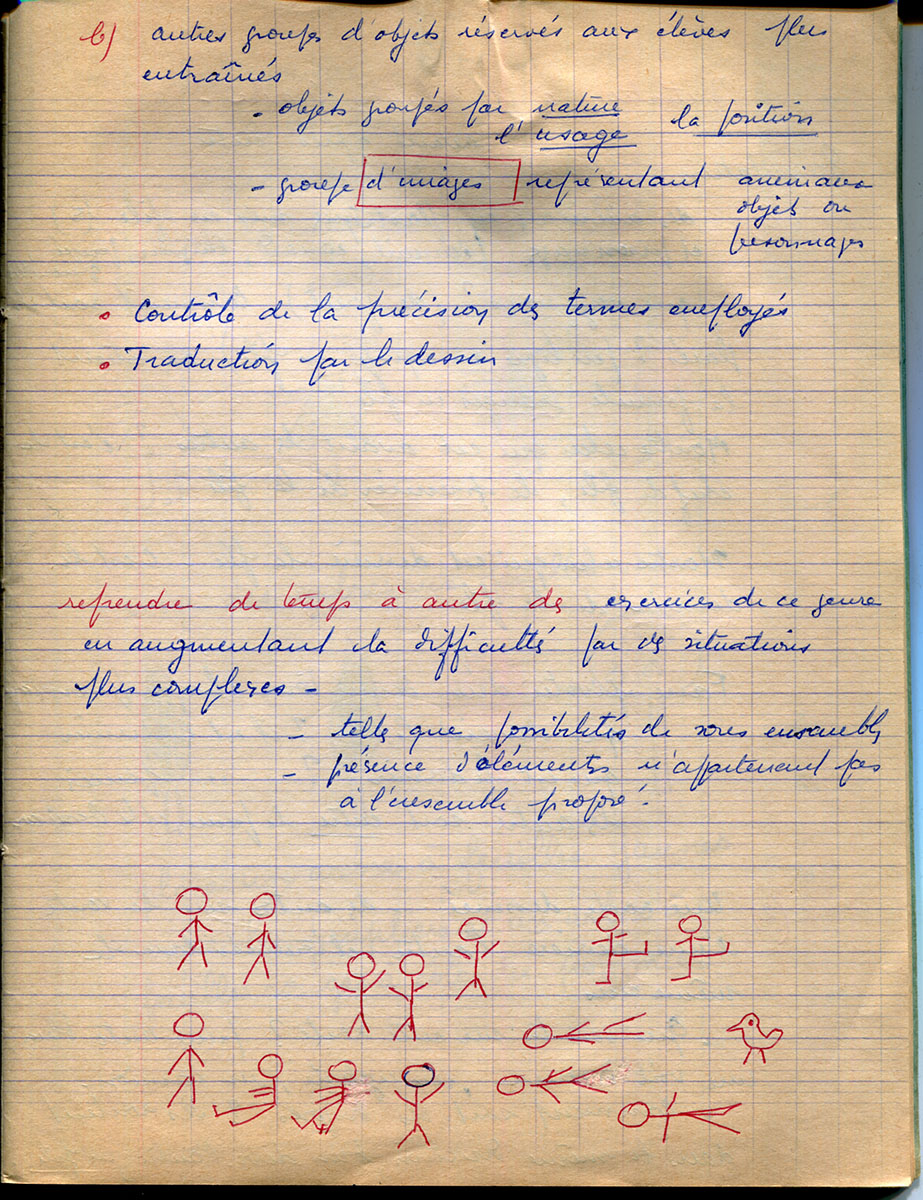 b) autres groupes d'objets réservés aux élèves plus
entraînés
- objets groupés par nature
l'usage la position
- groupe d'images représentant animaux
objets ou
personnages
• Contrôle de la précision des termes employés
• Traduction par le dessin
reprendre de temps à autre des exercices de ce genre
en augmentant la difficultés par des situations
plus complexes -
- telles que possibilités de sous ensembles
- présence d'éléments n'appartenant pas
à l'ensemble proposé.